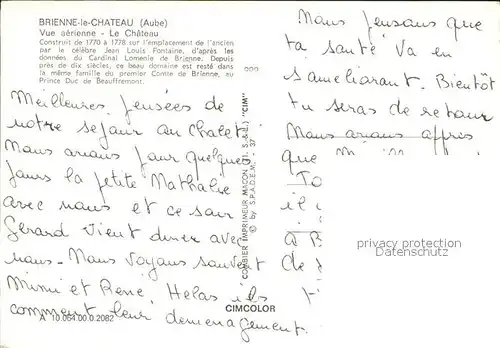 BRIENNE-le-CHATEAU (Aube)
Vue aérienne - Le Château
Construit de 1770 à 1778 sur l'emplacement de l'ancien
par le célèbre Jean Louis Fontaine, d'après les
données du Cardinal Lomenie de Brienne. Depuis
près de dix siècles, ce beau domaine est resté dans
la même famille du premier Comte de Brienne, au
Prince Duc de Beauffremont.
Meilleures pensées de
notre sejour au chalet
Nous avons pour quelques
jours la petite Nathalie
avec nous et ce soir
Gerard vient diner avec
nous - Nous voyons souvent
Mimi et Rene, Helas ils
commencent leur demenagement.
A 10.064.00.0.2082
COMBIER IMPRIMEUR MACON (S.-&-L.) "CIM"
© by S.P.A.D.E.M.
CIMCOLOR
Nous pensons que
ta santé va en
s'ameliorant. Bientôt
tu seras de retour
Nous avons appris
que
il
a B
de
privacy protection
Datenschutz